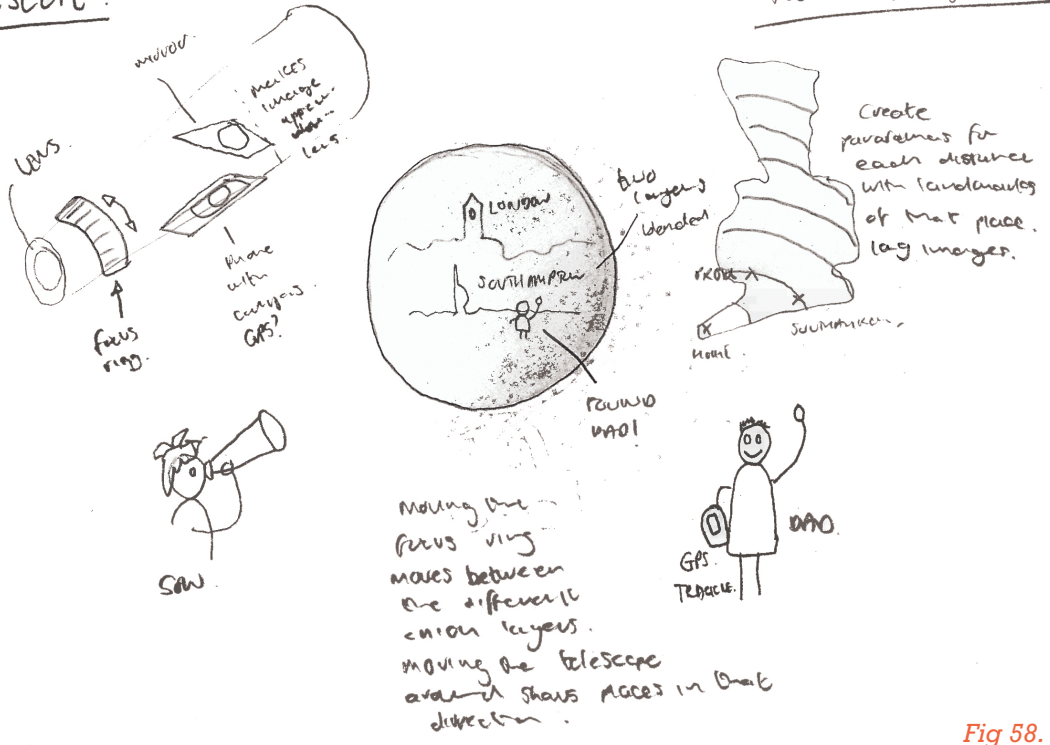 mirror.
makes
image
appear
lens.
LENS.
focus
ring.
Phone
with
compass.
GPS?
LONDON
SOUTHAMPTON
two
layers
blended
FOUND
DAD!
Create
panoramas for
each distance
with landmarks
of that place.
images.
SOUTHAMPTON.
HOME.
SON.
DAD.
GPS.
Moving the
focus ring
moves between
the different
onion layers.
moving the telescope
around shows places in that
direction.
Fig 58.